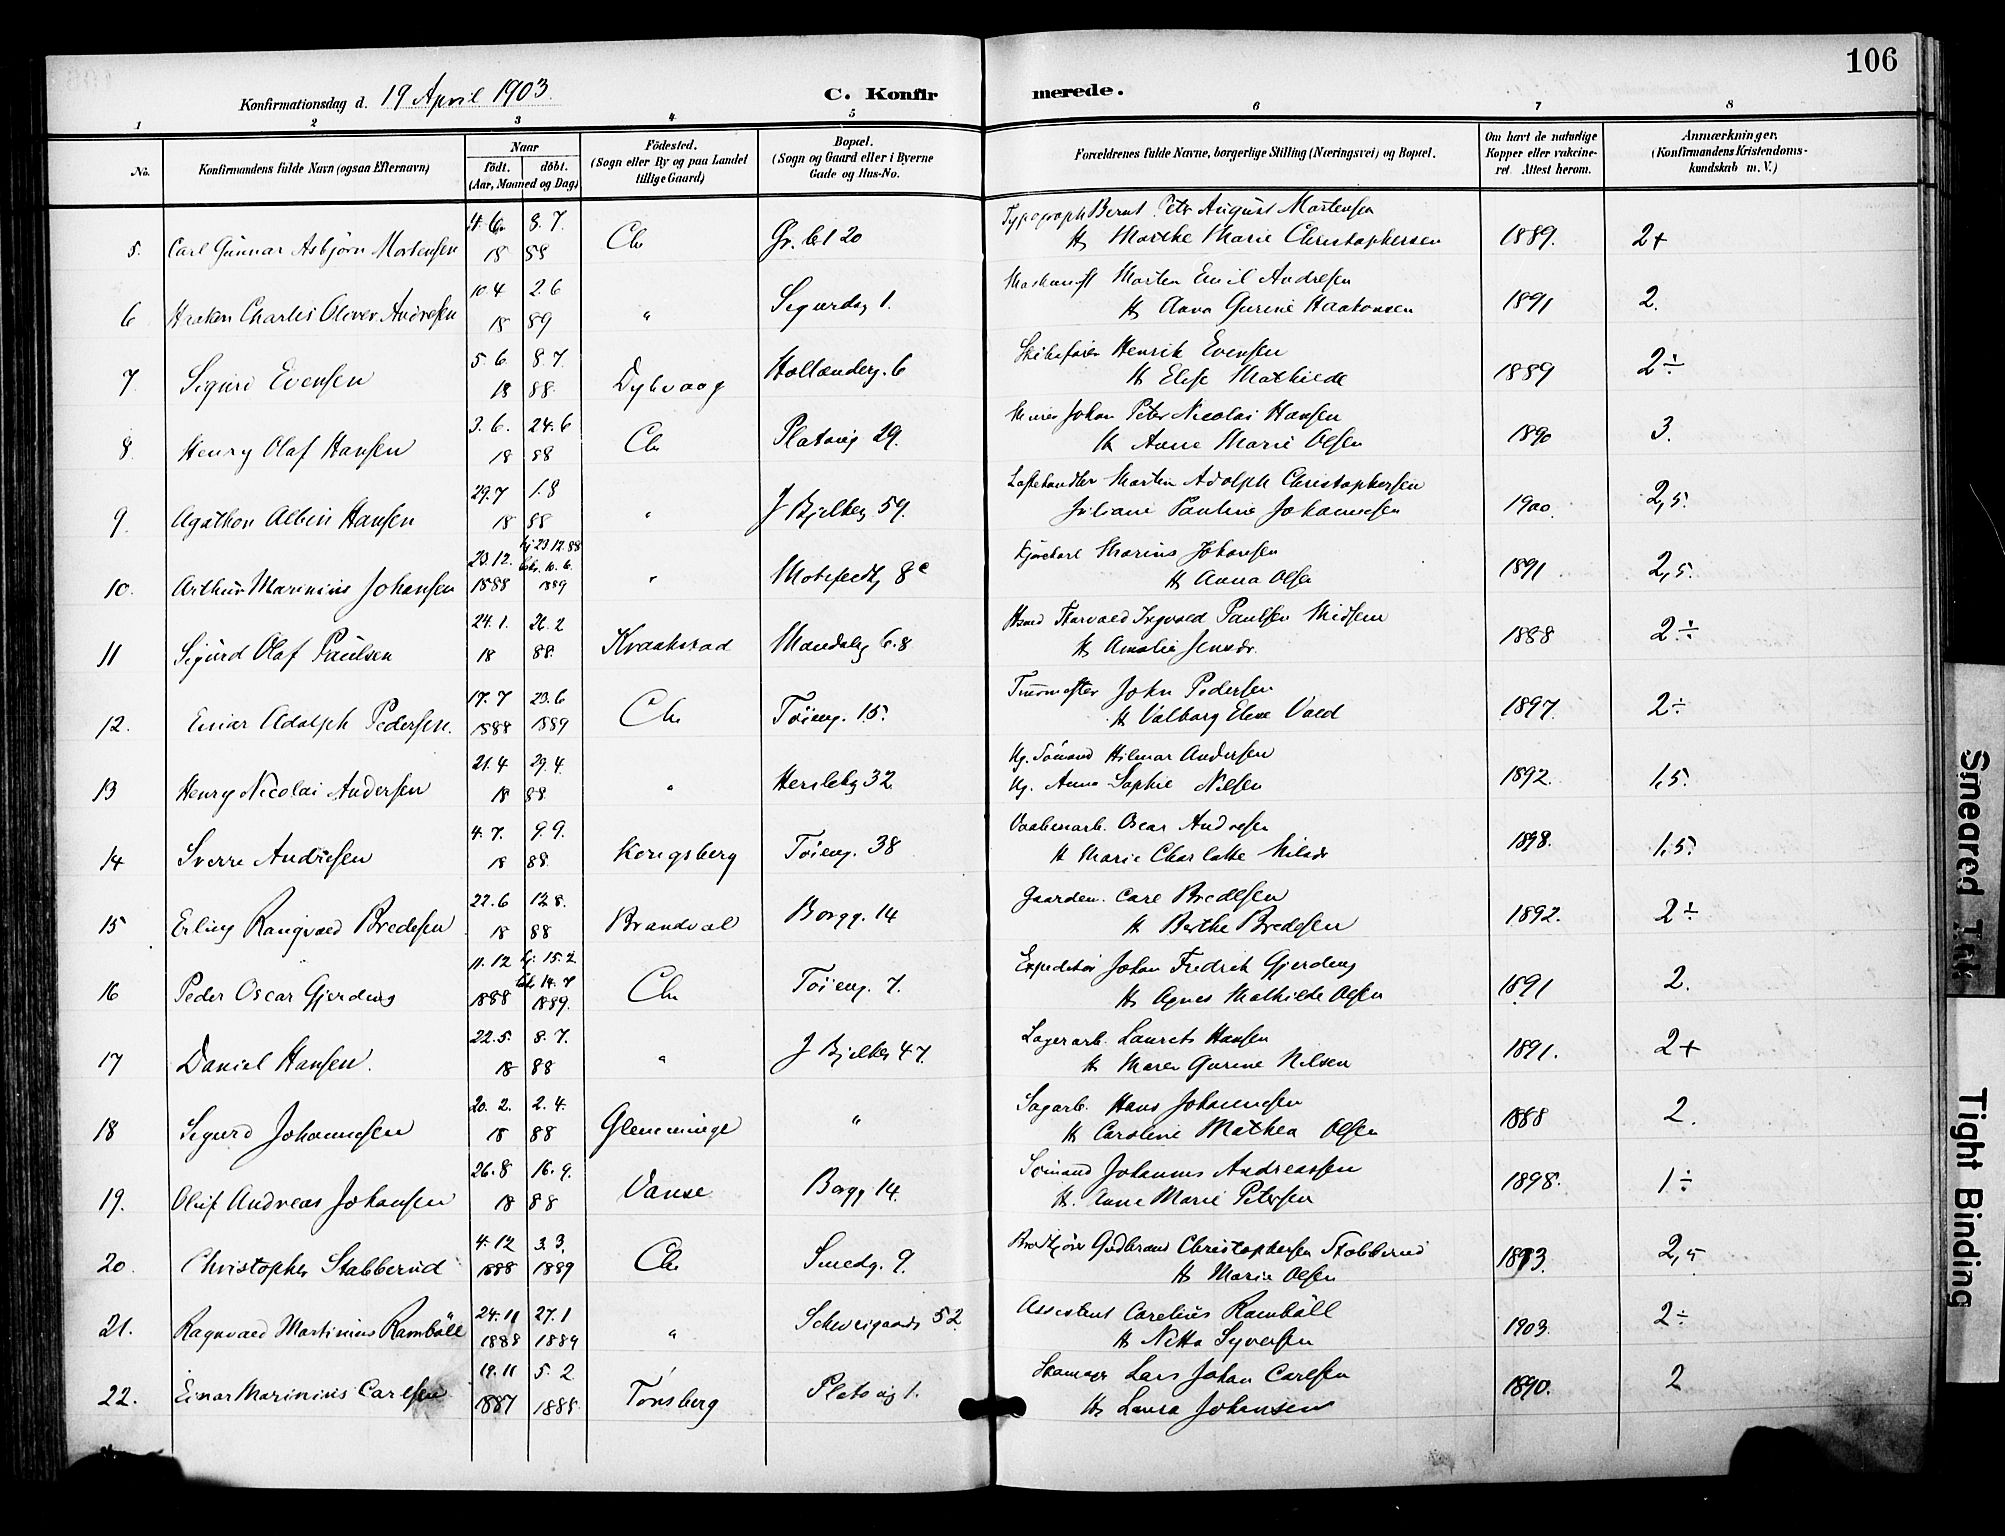 106
Konfirmationsdag d. 19 April 1903.
C. Konfirmerede.
1 2 3 4 5 6 7 8
No.
Konfirmandens fulde Navn (ogsaa Efternavn)
Naar
födt. döbt.
(Aar, Maaned og Dag)
Födested.
(Sogn eller By og paa Landet
tillige Gaard)
Bopæl.
(Sogn og Gaard eller i Byerne
Gade og Hus-No.
Forældrenes fulde Navne, borgerlige Stilling (Næringsvei) og Bopæl.
Om havt de naturlige
Kopper eller vakcine-
ret. Attest herom.
Anmærkninger.
(Konfirmandens Kristendoms-
kundskab m. V.)
4. 6. 8. 7. Typograph Bernt Petr August Mortensen
5. Carl Gunnar Asbjørn Mortensen 18 88 Chr Gr. bt 20 H Marthe Marie Christophersen 1889. 2+
10. 4 2. 6 Morten Emil Andresen
6 Haakon Charles Oliver Andresen 18 89 " Sigurdsg 1. H Anna Gurine Haakonsen 1891 2.
5. 6 8. 7. Henrik Evensen
7. Sigurd Evensen 18 88. Dybvaag Hollenderg. 6 H Elise Mathilde 1889 2÷
3. 6. 24. 6 Murer Johan Peter Nicolai Hansen
8. Henry Olaf Hansen 18 88 Chr Platoug 29. H Anne Marie Olsen 1890 3.
29. 7 1. 8 Martin Adolph Christophersen
9. Agathon Albin Hansen 18 88 " J Bjelkeg 59. Juliane Pauline Johannesen 1900. 2,5.
23. 12. hj 23. 12. 88 Kjørekarl Marius Johansen
10. Arthur Marinius Johansen 1888 1889 " Motzfeldtg 8c H Anna Olsen 1891 2,5.
24. 1. 26. 2 Thorvald Ingvald Paulsen
11 Sigurd Olaf Paulsen 18 88. Kraakstad Mandalsg 6. 8 H Amalie Jensdr. 1888 2÷
17. 7 23. 6 John Pedersen
12. Einar Adolph Pedersen. 1888 1889 Chr Töieng. 15. H Valborg Elise Vold 1897. 2÷
21. 4 29. 4. Ug. Sömand Hilmar Andersen
13 Henry Nicolai Andersen 18 88. " Herslebg 32 Ug. Anna Sophie Nilsen 1892. 1,5.
4. 7. 9. 9. Vaabenarb. Oscar Andresen
14 Sverre Andresen 18 88 Kongsberg Töieng. 38 H Marie Charlotte Nilsdr 1898. 1,5.
22. 6 12. 8. Gaarden. Carl Bredesen
15 Erling Rangvald Bredesen 18 88 Brandval Borgg. 14 H Berthe Bredesen 1892. 2÷
11. 12 hj. 15. 2 Expeditör Johan Fredrik Gjerding
16 Peder Oscar Gjerding 1888 1889. Chr Töieng. 7. H Agnes Mathilde Olsen 1891 2.
22. 5. 8. 7. Lagerarb. Laurits Hansen
17 Daniel Hansen. 18 88 " J Bjelkes 47. H Maren Gurine Nilsen 1891. 2+
20. 2. 2. 4. Sagarb. Hans Johannesen
18 Sigurd Johannesen 18 88 Glemminge " H Caroline Mathea Olsen 1888 2.
26. 8 16. 9. Sömand Johannes Andreassen
19. Oluf Andreas Johansen 18 88 Vanse Borgg 14. H. Anne Marie Petersen 1898. 1÷
4. 12 3. 3. Gudbrand Christophersen Stabberud
20. Christopher Stabberud 1888 1889 Chr Smedg. 9. H Marie Olsen 2,5
24. 11 27. 1 Assistent Carelius Ramböll
21. Ragnvald Martinius Ramböll 1888 1889 " Schweigaards 52. H Netta Syversen 1903. 2÷
19. 11 5. 2 Lars Johan Carlsen
22. Einar Marinius Carlsen 1887 1888 Tönsberg Platoug 1. H Laura Johansen 1890. 2
Smeared Ink
Tight Binding